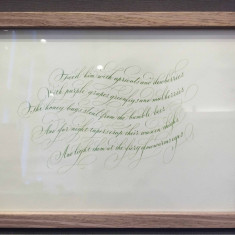 Feed him with apricocks and dewberries
With purple grapes, green figs, and mulberries
The honey-bags steal from the humble bees
And for night-tapers crop their waxen thighs
And light them at the fiery glowworm's eyes